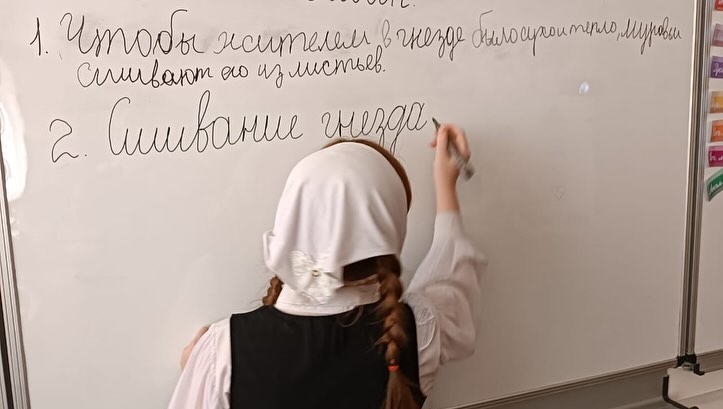 1. Чтобы жителем в гнезде было сухо и тепло, муравьи
сшивают его из листьев.
2. Сшивание гнезда